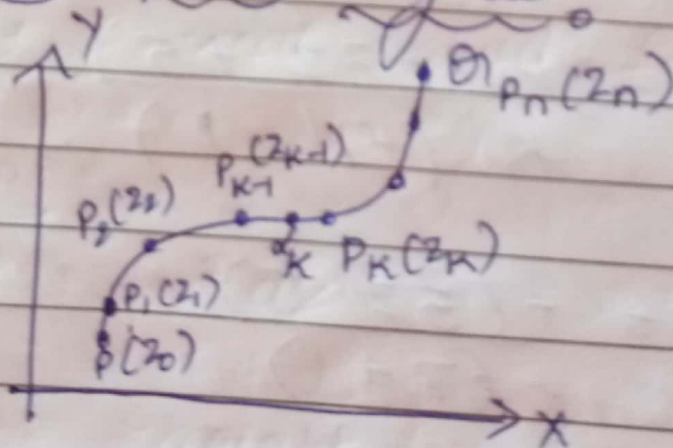 Y
Q Pn(zn)
PK-1(zK-1)
P2(z2)
αK PK(zK)
P1(z1)
P(z0)
X